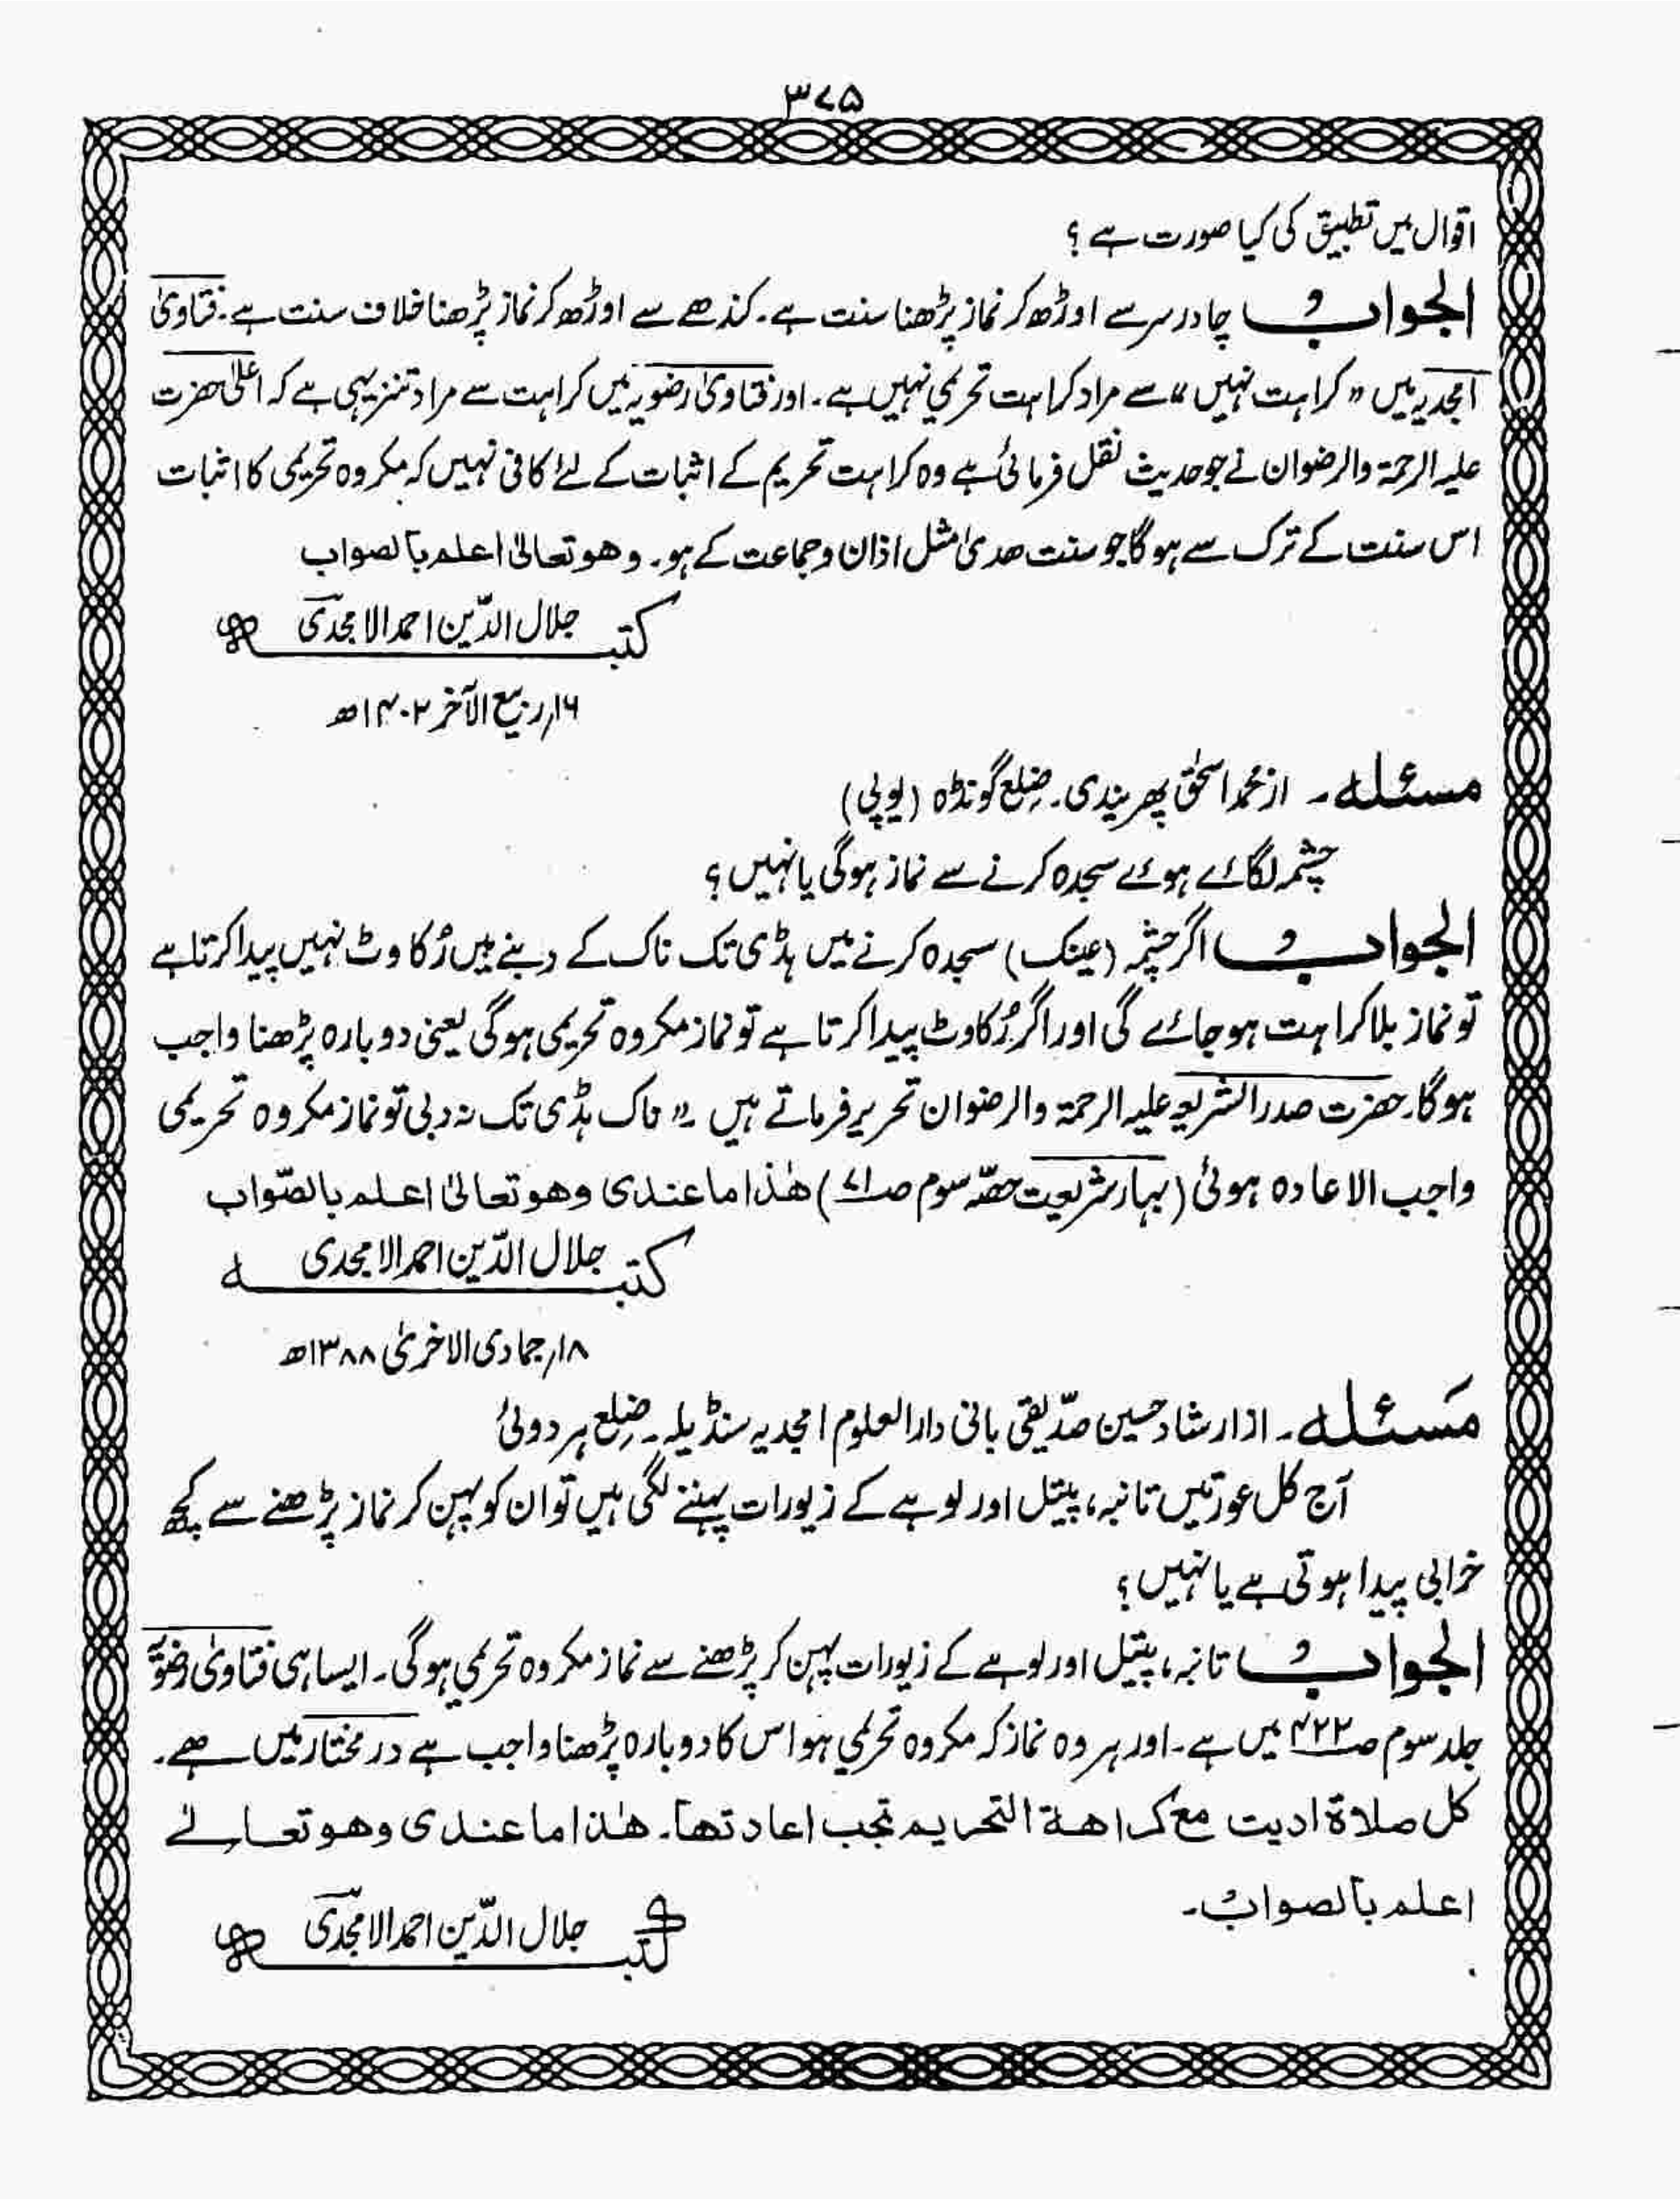 ۳۷۵
اقوال میں تطبیق کی کیا صورت ہے؟
الجواب چادر سر سے اوڑھ کر نماز پڑھنا سنت ہے۔ کندھے سے اوڑھ کر نماز پڑھنا خلاف سنت ہے۔ فتاویٰ
امجدیہ میں "کراہت نہیں" سے مراد کراہت تحریمی نہیں ہے۔ اور فتاویٰ رضویہ میں کراہت سے مراد تنزیہی ہے کہ اعلیٰ حضرت
علیہ الرحمۃ والرضوان نے جو حدیث نقل فرمائی ہے وہ کراہت تحریم کے اثبات کے لئے کافی نہیں کہ مکروہ تحریمی کا اثبات
اس سنت کے ترک سے ہوگا جو سنت ھدیٰ مثل اذان وجماعت کے ہو۔ وھو تعالیٰ اعلم بالصواب
کتبہ جلال الدّین احمد الامجدی
۱۶؍ ربیع الآخر ۱۴۰۲ھ
مسئلہ۔ از محمد اسحٰق پھریندی۔ ضلع گونڈہ (یوپی)
چشمہ لگائے ہوئے سجدہ کرنے سے نماز ہوگی یا نہیں؟
الجواب اگر چشمہ (عینک) سجدہ کرنے میں ہڈی تک ناک کے دبنے میں رُکاوٹ نہیں پیدا کرتا ہے
تو نماز بلا کراہت ہو جائے گی اور اگر رُکاوٹ پیدا کرتا ہے تو نماز مکروہ تحریمی ہوگی یعنی دوبارہ پڑھنا واجب
ہوگا۔ حضرت صدر الشریعہ علیہ الرحمۃ والرضوان تحریر فرماتے ہیں۔ " ناک ہڈی تک نہ دبی تو نماز مکروہ تحریمی
واجب الاعادہ ہوئی (بہار شریعت حصّہ سوم صـ۷۱) ھٰذا ما عندی وھو تعالیٰ اعلم بالصّواب
کتبہ جلال الدّین احمد الامجدی
۱۸؍ جمادی الاخریٰ ۱۳۸۸ھ
مَسئلہ۔ از ارشاد حسین صدّیقی بانی دارالعلوم امجدیہ سنڈیلہ۔ ضلع ہردوئی
آج کل عورتیں تانبہ، پیتل اور لوہے کے زیورات پہننے لگی ہیں تو ان کو پہن کر نماز پڑھنے سے کچھ
خرابی پیدا ہوتی ہے یا نہیں؟
الجواب تانبہ، پیتل اور لوہے کے زیورات پہن کر پڑھنے سے نماز مکروہ تحریمی ہوگی۔ ایسا ہی فتاویٰ رضویّہ
جلد سوم صـ۴۲۲ میں ہے۔ اور ہر وہ نماز کہ مکروہ تحریمی ہو اس کا دوبارہ پڑھنا واجب ہے در مختار میں ہے۔
کل صلاۃ ادیت مع کراھۃ التحریم تجب اعادتھا۔ ھٰذا ما عندی وھو تعالےٰ
اعلم بالصواب۔
کتبہ جلال الدّین احمد الامجدّی